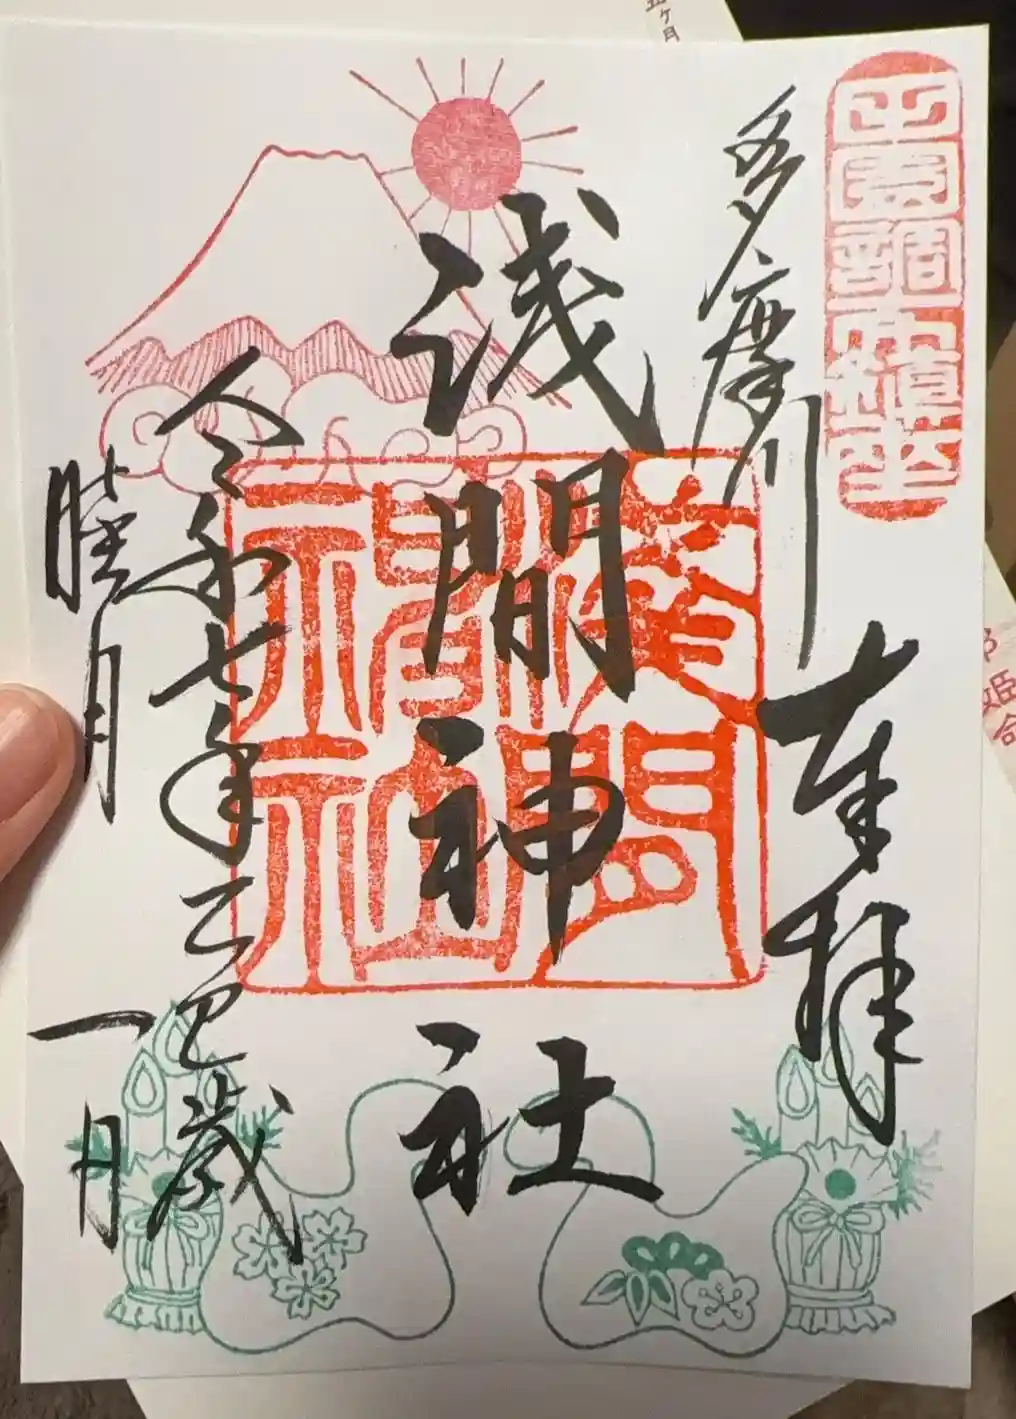 田園調布鎮座
多摩川
奉拝
浅間神社
令和七年乙巳歳
睦月
一月
淺間
神社
ヶ月
姫命